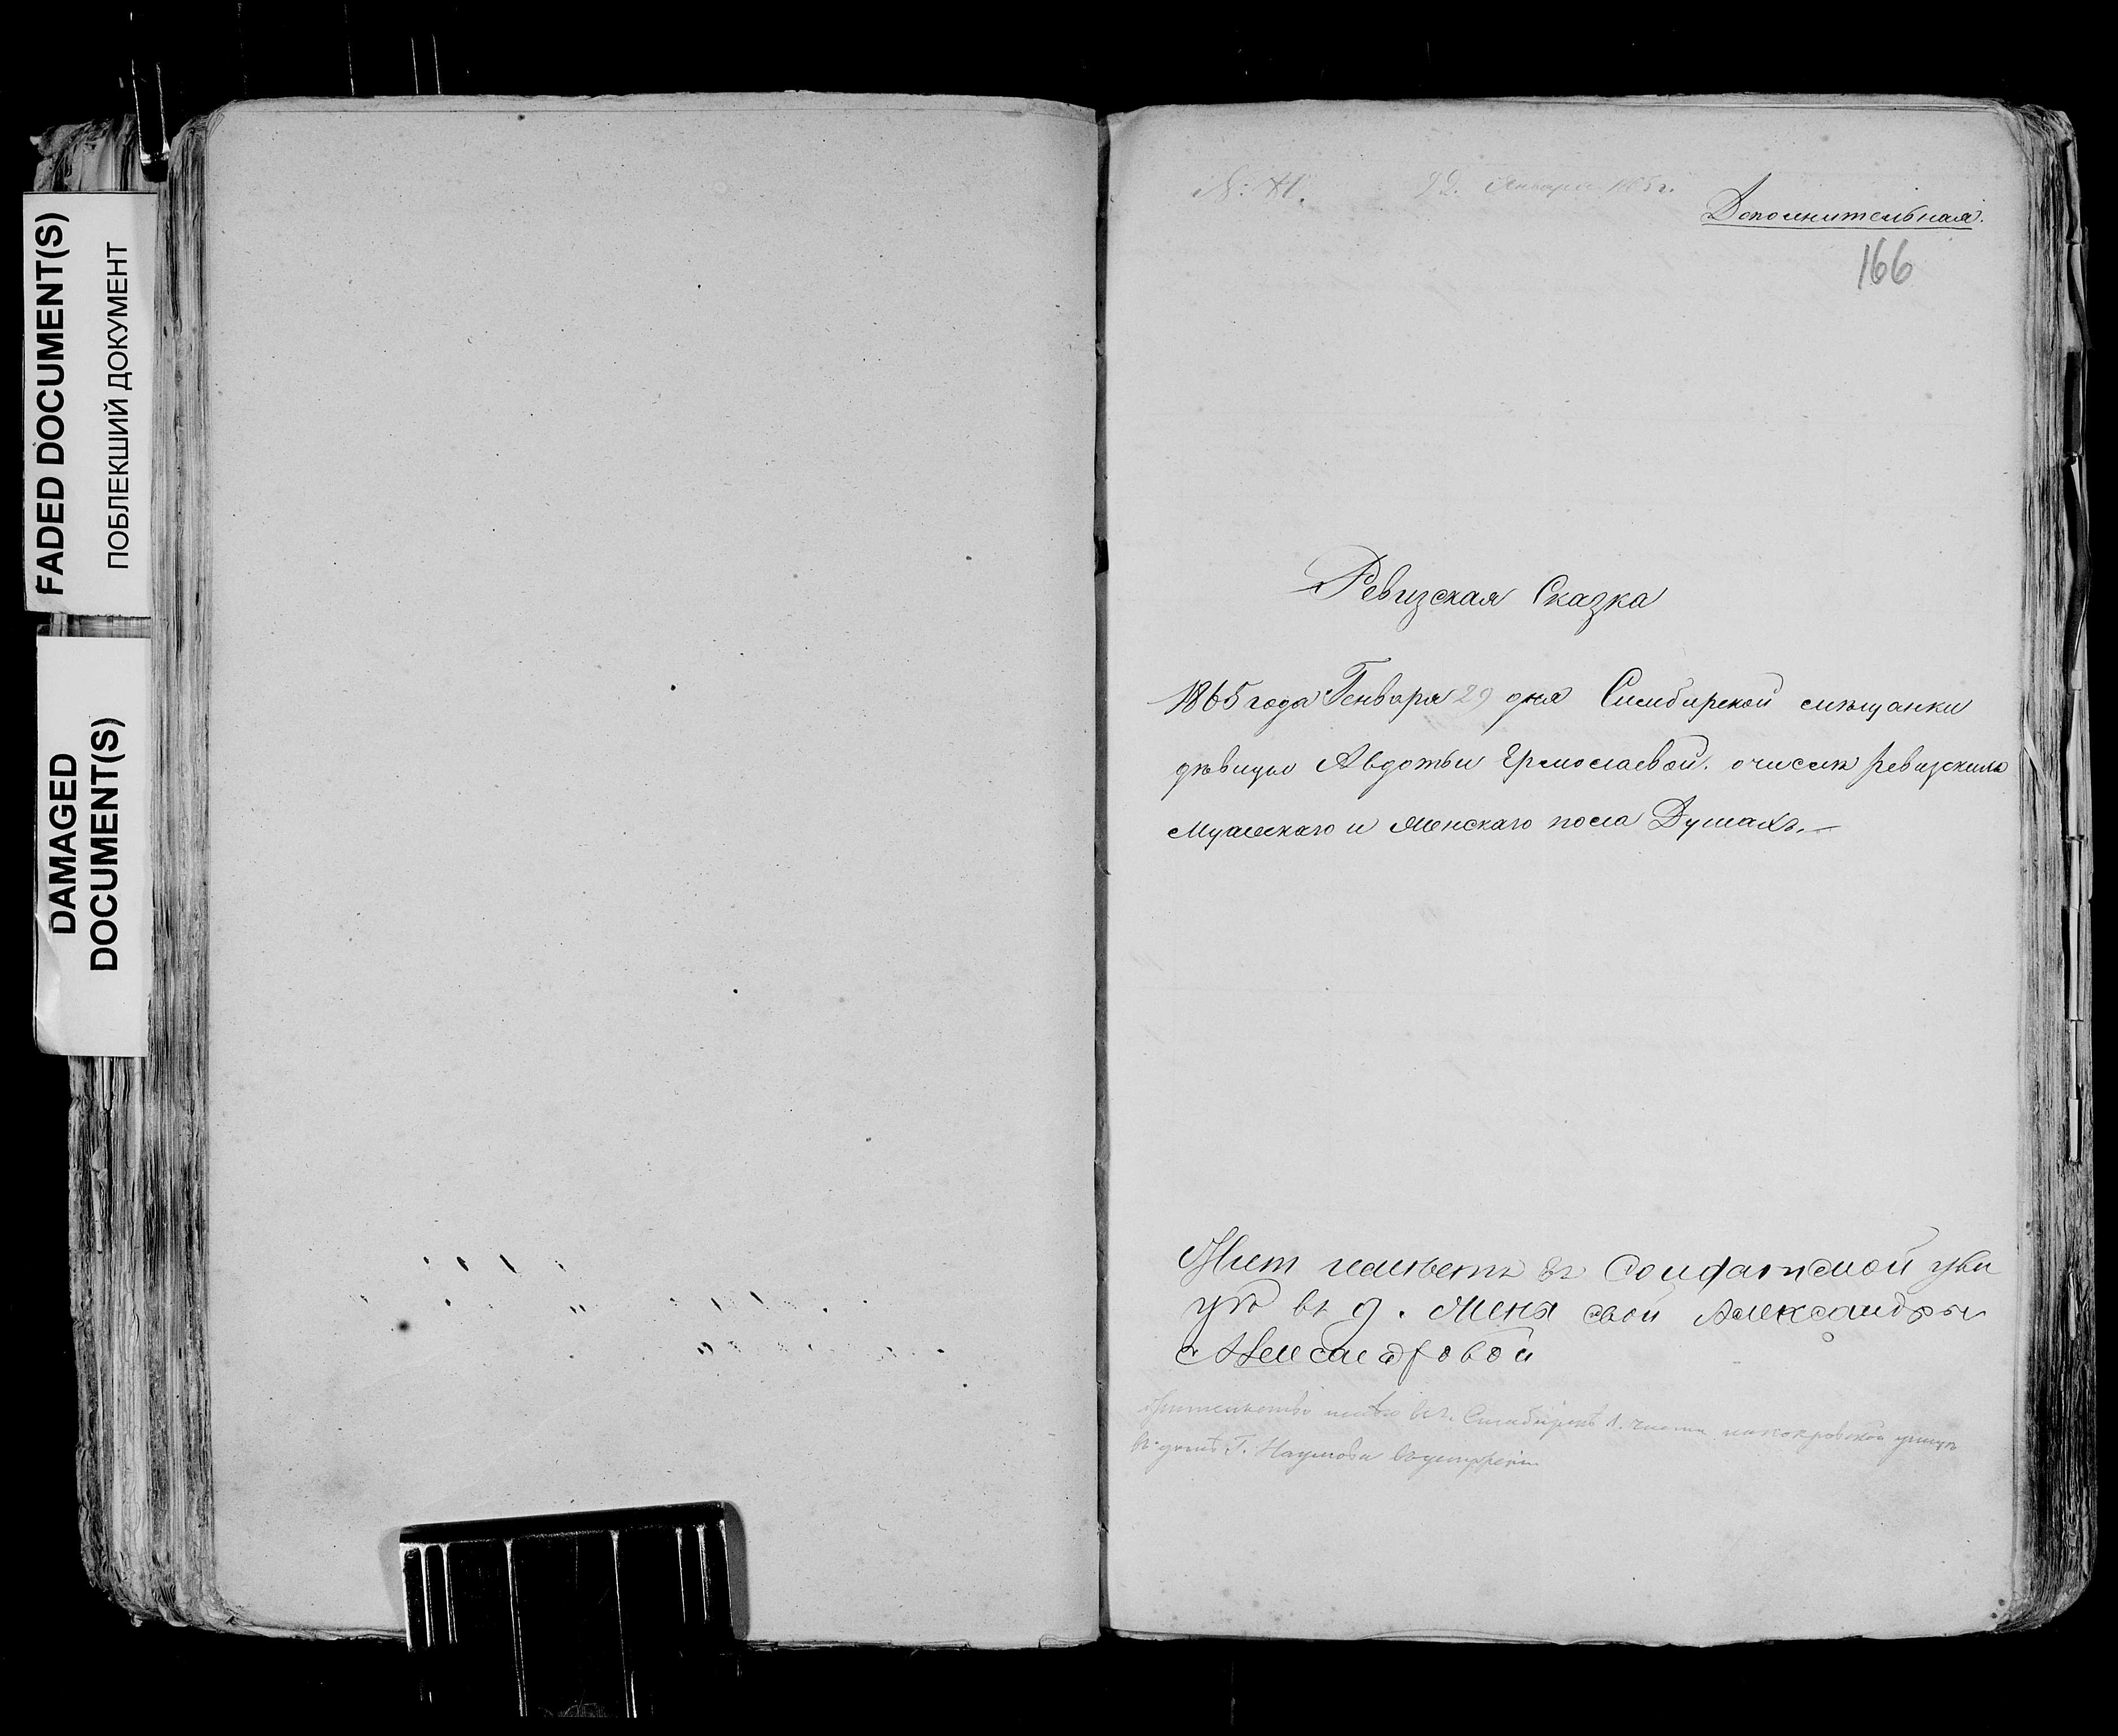 FADED DOCUMENT(S)
ПОБЛЕКШИЙ ДОКУМЕНТ
DAMAGED
DOCUMENT(S)
22. Января 1865 г.
Дополнительная.
166
Ревизская Сказка
1865 года Генваря 29 дня Симбирской мѣщанки
дѣвицы Авдотьи Ермолаевой. о числѣ ревизскихъ
Мужескаго и Женскаго пола Душахъ.—
въ Солдатской ули
цѣ въ д. Александры
Александровой
Жительство имѣю въ г. Симбирскѣ 1. части на покровской улицѣ
въ домѣ Г. Наумова